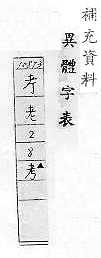 補充資料
異體字表
考
老
2
8
考▲